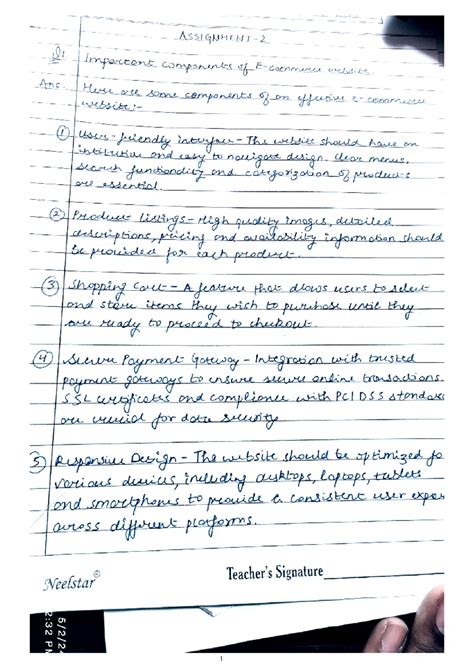 ASSIGNMENT-2
Q1 Important components of E-commerce website.
Ans. Here are some components of an effective e-commerce
website:-
① User-friendly interface - The website should have an
intitutive and easy to navigate design. Clear menus,
search functionality and categorization of products
are essential.
② Product listings - High quality images, detailed
descriptions, pricing and availability information should
be provided for each product.
③ Shopping Cart - A feature that allows users to select
and store items they wish to purchase until they
are ready to proceed to checkout.
④ Secure Payment Gateway - Integration with trusted
payment gateways to ensure secure online transactions.
SSL certificates and compliance with PCI DSS standards
are crucial for data security
⑤ Responsive Design - The website should be optimized fo
various devices, including desktops, laptops, tablets
and smartphones to provide a consistent user exper
across different platforms.
Neelstar©
Teacher's Signature
5/2/24
2:32 PM
1